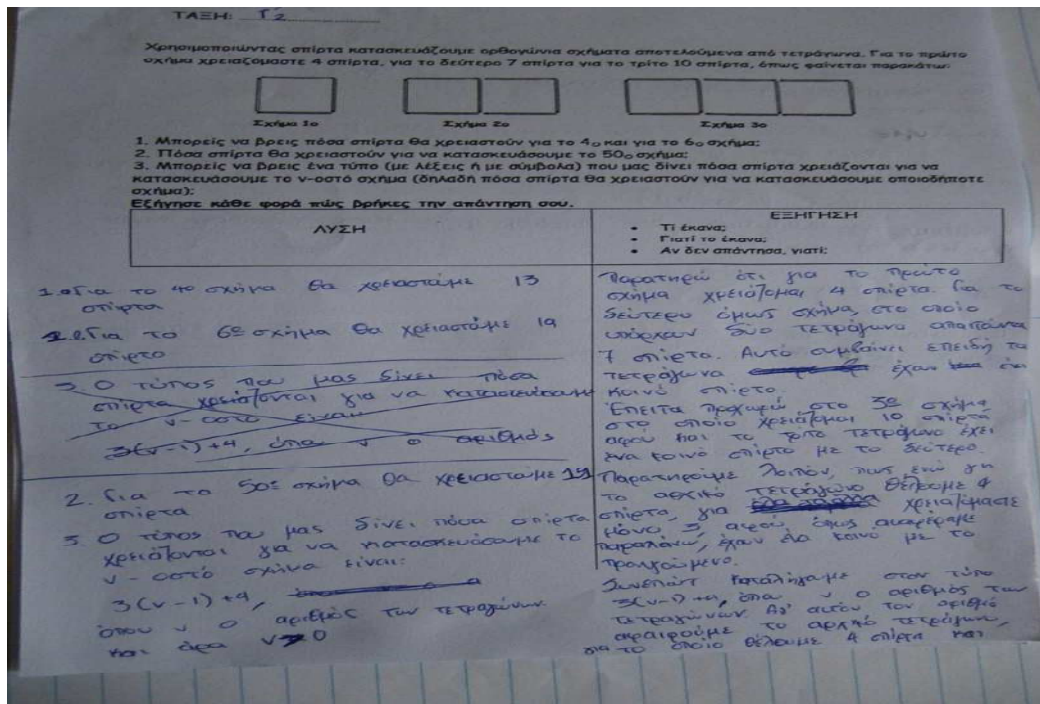 ΤΑΞΗ: Γ2
Χρησιμοποιώντας σπίρτα κατασκευάζουμε ορθογώνια σχήματα αποτελούμενα από τετράγωνα. Για το πρώτο
σχήμα χρειαζόμαστε 4 σπίρτα, για το δεύτερο 7 σπίρτα για το τρίτο 10 σπίρτα, όπως φαίνεται παρακάτω:
Σχήμα 1ο Σχήμα 2ο Σχήμα 3ο
1. Μπορείς να βρεις πόσα σπίρτα θα χρειαστούν για το 4ο και για το 6ο σχήμα;
2. Πόσα σπίρτα θα χρειαστούν για να κατασκευάσουμε το 50ο σχήμα;
3. Μπορείς να βρεις ένα τύπο (με λέξεις ή με σύμβολα) που μας δίνει πόσα σπίρτα χρειάζονται για να
κατασκευάσουμε το ν-οστό σχήμα (δηλαδή πόσα σπίρτα θα χρειαστούν για να κατασκευάσουμε οποιοδήποτε
σχήμα);
Εξήγησε κάθε φορά πώς βρήκες την απάντηση σου.
ΛΥΣΗ
ΕΞΗΓΗΣΗ
• Τί έκανα;
• Γιατί το έκανα;
• Αν δεν απάντησα, γιατί;
1. Για το 4ο σχήμα θα χρειαστούμε 13
σπίρτα
Για το 6ο σχήμα θα χρειαστούμε 19
σπίρτα
3. Ο τύπος που μας δίνει πόσα
σπίρτα χρειάζονται για να κατασκευάσουμε
το ν-οστό είναι
3(ν-1)+4, όπου ν ο αριθμός
2. Για το 50ο σχήμα θα χρειαστούμε
σπίρτα
3 Ο τύπος που μας δίνει πόσα σπίρτα
χρειάζονται για να κατασκευάσουμε το
ν-οστό σχήμα είναι:
3(ν-1)+4,
όπου ν ο αριθμός των τετραγώνων.
και άρα ν>0
Παρατηρώ ότι για το πρώτο
σχήμα χρειάζομαι 4 σπίρτα. Για το
δεύτερο όμως σχήμα, στο οποίο
υπάρχουν δύο τετράγωνα απαιτούνται
7 σπίρτα. Αυτό συμβαίνει επειδή τα
τετράγωνα έχουν ένα
κοινό σπίρτο.
Έπειτα προχωρώ στο 3ο σχήμα
στο οποίο χρειάζομαι 10 σπίρτα,
αφού και το τρίτο τετράγωνο έχει
ένα κοινό σπίρτο με το δεύτερο.
Παρατηρούμε λοιπόν, πως ενώ για
το αρχικό τετράγωνο θέλουμε 4
σπίρτα, για χρειαζόμαστε
μόνο 3, αφού, όπως αναφέραμε
παραπάνω, έχουν ένα κοινό με το
προηγούμενο.
Συνεπώς καταλήγουμε στον τύπο
3(ν-1)+4, όπου ν ο αριθμός των
τετραγώνων. Απ' αυτόν τον αριθμό
αφαιρούμε το αρχικό τετράγωνο,
για το οποίο θέλουμε 4 σπίρτα και